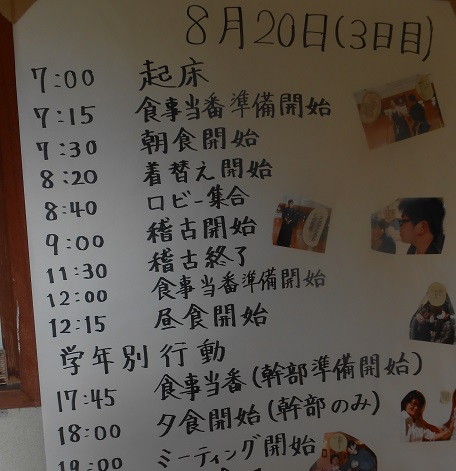 8月20日(3日目)
7:00 起床
7:15 食事当番準備開始
7:30 朝食開始
8:20 着替え開始
8:40 ロビー集合
9:00 稽古開始
11:30 稽古終了
12:00 食事当番準備開始
12:15 昼食開始
学年別行動
17:45 食事当番(幹部準備開始)
18:00 夕食開始(幹部のみ)
19:00 ミーティング開始